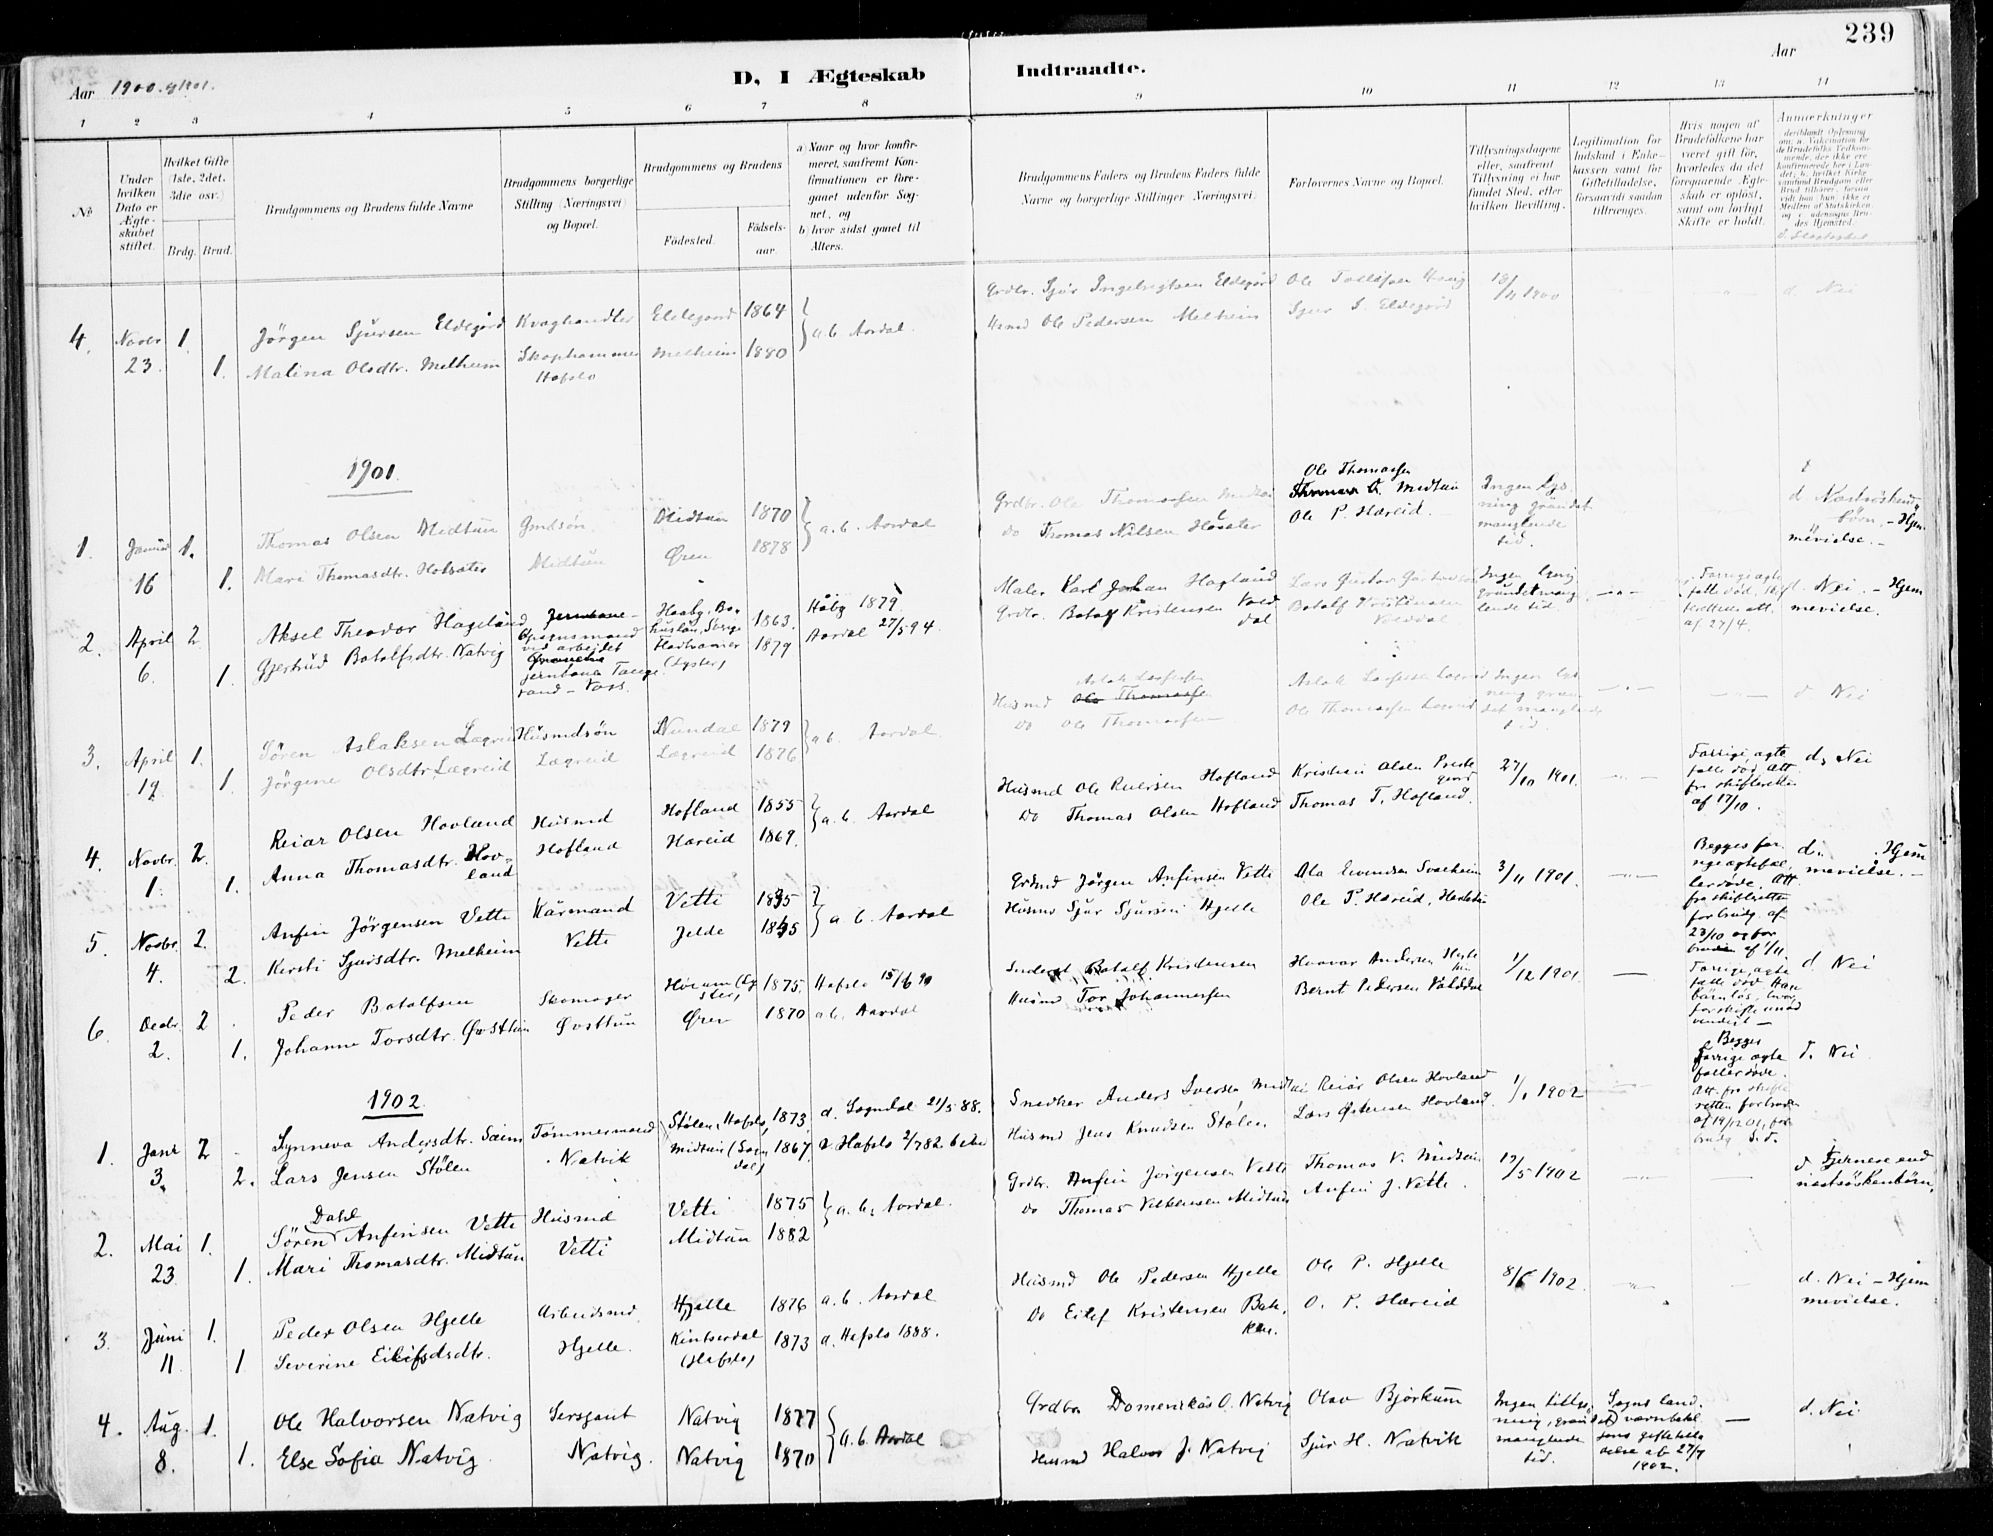 239
Aar 1900 og 1901.
D, I Ægteskab Indtraadte.
Aar
1 2 3 4 5 6 7 8 9 10 11 12 13 14
No
Under hvilken Dato er Ægteskabet stiftet.
Hvilket Gifte (1ste, 2det, 3die osv.)
Brdg. Brud.
Brudgommens og Brudens fulde Navne
Brudgommens borgerlige Stilling (Næringsvei) og Bopæl.
Brudgommens og Brudens
Fødested. Fødselsaar.
a) Naar og hvor konfirmeret, saafremt Konfirmationen er foregaaet udenfor Sognet, og
b) hvor sidst gaaet til Alters.
Brudgommens Faders og Brudens Faders fulde Navne og borgerlige Stillinger (Næringsvei)
Forlovernes Navne og Bopæl.
Tillysningsdagene eller, saafremt Tillysning ei har fundet Sted, efter hvilken Bevilling.
Legitimation for Indskud i Enkekassen samt for Giftetilladelse, forsaavidt saadan tiltrænges.
Hvis nogen af Brudefolkene har været gift før, hvorledes da det foregaaende Ægteskab er opløst, samt om lovligt Skifte er holdt.
Anmærkninger
4. Novbr 23. 1. 1.
Jörgen Sjursen Eldegård Kvæghandler Eldegaard 1864 a.b. Aardal.
Malina Olsdtr. Melheim Skaphammer Hafslo Melheim 1880
Grdbr. Sjur Ingebrigtsen Eldegård
Hsmd Ole Pedersen Melheim
Ole Tollefsen
Sjur S. Eldegård
18/11 1900
d. Nei
1901.
1. Januar 16 1. 1.
Thomas Olsen Midtun Gmdsön. Midtun 1870 a.b. Aardal
Mari Thomasdtr. Hofsæter Midtun Øren 1878
Grdbr. Ole Thomassen Midtun
do Thomas Nilsen Hofsæter
Ole Thomassen
Thomas O. Midtun
Ole P. Hæreid.
Ingen lysning grundet manglende tid.
d. Næstsöskendebörn. - Hjemmevielse.
2. April 6. 2. 1.
Aksel Theodor Hagelund
Gjertrud Botolfsdtr. Natvig
1863. 1879
Håbg 1879.
Aardal 27/5 94.
Maler Karl Johan Hagland
Grdbr. Botolf Kristensen Volddal
Lars Gustav Gustavsen
Botolf Kristensen Volddal
Ingen lysning grundet manglende tid.
af 27/4.
d. Nei. - Hjemmevielse.
3. April 19. 1. 1.
Sören Aslaksen Lægreid Husmdsön Nundal 1879 a.b. Aardal
Jörgine Olsdtr. Lægreid Lægreid Lægreid 1876
Husmd Aslak Larsen
Ole Thomassen
Do Ole Thomassen
Aslak Larsen Lægreid
Ole Thomassen Lægreid
Ingen lysning grundet manglende tid.
d. Nei
4. Novbr. 1. 2. 1.
Reiar Olsen Hovland Husmd Hofland 1855 a.b. Aardal
Anna Thomasdtr. Hovland Hofland Hæreid 1869.
Husmd Ole Reiersen Hofland
Do Thomas Olsen Hofland
Kristian Olsen Prestegaard
Thomas T. Hofland.
27/10 1901.
Forrige ægtefælle død. Att. fra skifteretten af 17/10.
d. Nei
5. Novbr. 4. 2. 2.
Anfin Jörgensen Vetti Kårmand Vetti 1835 a.b. Aardal
Kersti Sjursdtr. Melheim Vetti Jelde 1845
Grdmd Jörgen Anfinsen Vetti
Husmd Sjur Sjursen Hjelle
Ola Evendsen Svalheim
Ole P. Hæreid,
3/11 1901.
Begges forrige ægtefæller døde. Att. fra skifteretten for brudg. af 23/10 og for bruden af 1/11.
d. Hjemmevielse. -
6. Decbr. 2. 2. 1.
Peder Botolfsen Skomager Høium (Lyster) 1875. Hafslo 15/6 90
Johanne Torsdtr. Øvsttun Øvsttun Øren 1870 a.b. Aardal
Botolf Kristensen
Husmd Tor Johannessen
Haavar Andersen
Bernt Pedersen Volddal
1/12 1901.
Forrige ægtefælle død. Han barnløs, hvorfor skifte unødvendigt -
d. Nei
1902.
1. Janr 3. 2. 2.
Synneva Andersdtr. Sæim Tømmermand Stølen, Hafslo, 1873. d. Sogndal 21/5 88.
Lars Jensen Stølen Natvik Midtun (Sogndal) 1867. Hafslo 2/7 82
Snedker Anders Iversen Midtun
Husmd Jens Knudsen Stølen
Reiar Olsen Hovland
Lars Østensen Hovland.
1/1 1902
Begges Forrige ægtefæller døde. Att. fra skifteretten for bruden af 19/12 01, for brudg. S.D.
d. Nei
2. Mai 23 1. 1.
Sören Dahl Anfinsen Vetti Husmd Vetti 1875 a.b. Aardal.
Mari Thomasdtr. Midtun Vetti Midtun 1882
Grdbr. Anfin Jörgensen Vetti
Do Thomas Vilhelmsen Midtun
Thomas V. Midtun
Anfin J. Vetti.
19/5 1902
d. Fjernere end næstsöskenbörn.
3. Juni 11. 1. 1
Peder Olsen Hjelle Arbeidsmd. Hjelle 1876 a.b. Aardal
Severine Eilifsdtr. Hjelle. Kintserdal (Hafslo) 1873 a. Hafslo 1888.
Husmd Ole Pedersen Hjelle
Do Eilef Kristensen Bakken.
Ole P. Hjelle
O. P. Hæreid
8/6 1902.
d. Nei - Hjemmevielse.
4. Aug. 8. 1. 1.
Ole Halvorsen Natvig Sersjant Natvig 1877 a.b. Aardal
Else Sofia Natvig. Natvig. Natvig 1870
Grdbr Domenikus O. Natvig
Husmd Halvor J. Natvig
Olav Bjørkum
Sjur H. Natvik
Ingen tillysning, grundet manglende tid.
Sogns land. værnbatl. Jens giftetilladelse ab 27/7 1902.
d. Nei.